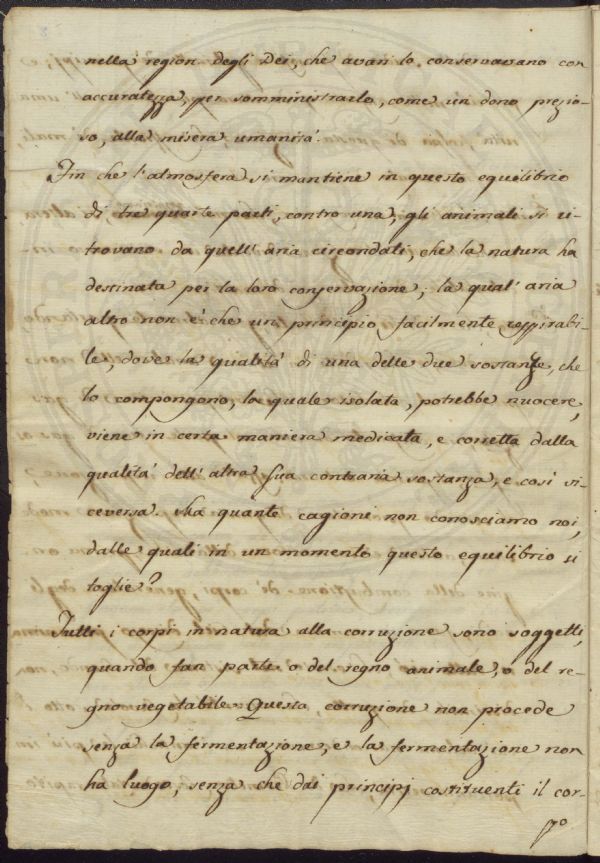 nella region degli Dei, che avari lo conservavano con
accuratezza, per somministrarlo, come un dono prezio-
so, alla misera umanità.
Fin che l'atmosfera si mantiene in questo equilibrio
di tre quarte parti, contro una, gli animali si ri-
trovano da quell'aria circondati, che la natura ha
destinata per la loro conservazione; la qual'aria
altro non è che un principio facilmente respirabi-
le, dove la qualità di una delle due sostanze, che
lo compongono, la quale isolata, potrebbe nuocere,
viene in certa maniera medicata, e corretta dalla
qualità dell'altra sua contraria sostanza, e così vi-
ceversa. Ma quante cagioni non conosciamo noi,
dalle quali in un momento questo equilibrio si
toglie?
Tutti i corpi in natura alla corruzione sono soggetti,
quando fan parte o del regno animale, o del re-
gno vegetabile. Questa corruzione non procede
senza la fermentazione, e la fermentazione non
ha luogo, senza che dai principj costituenti il cor-
po